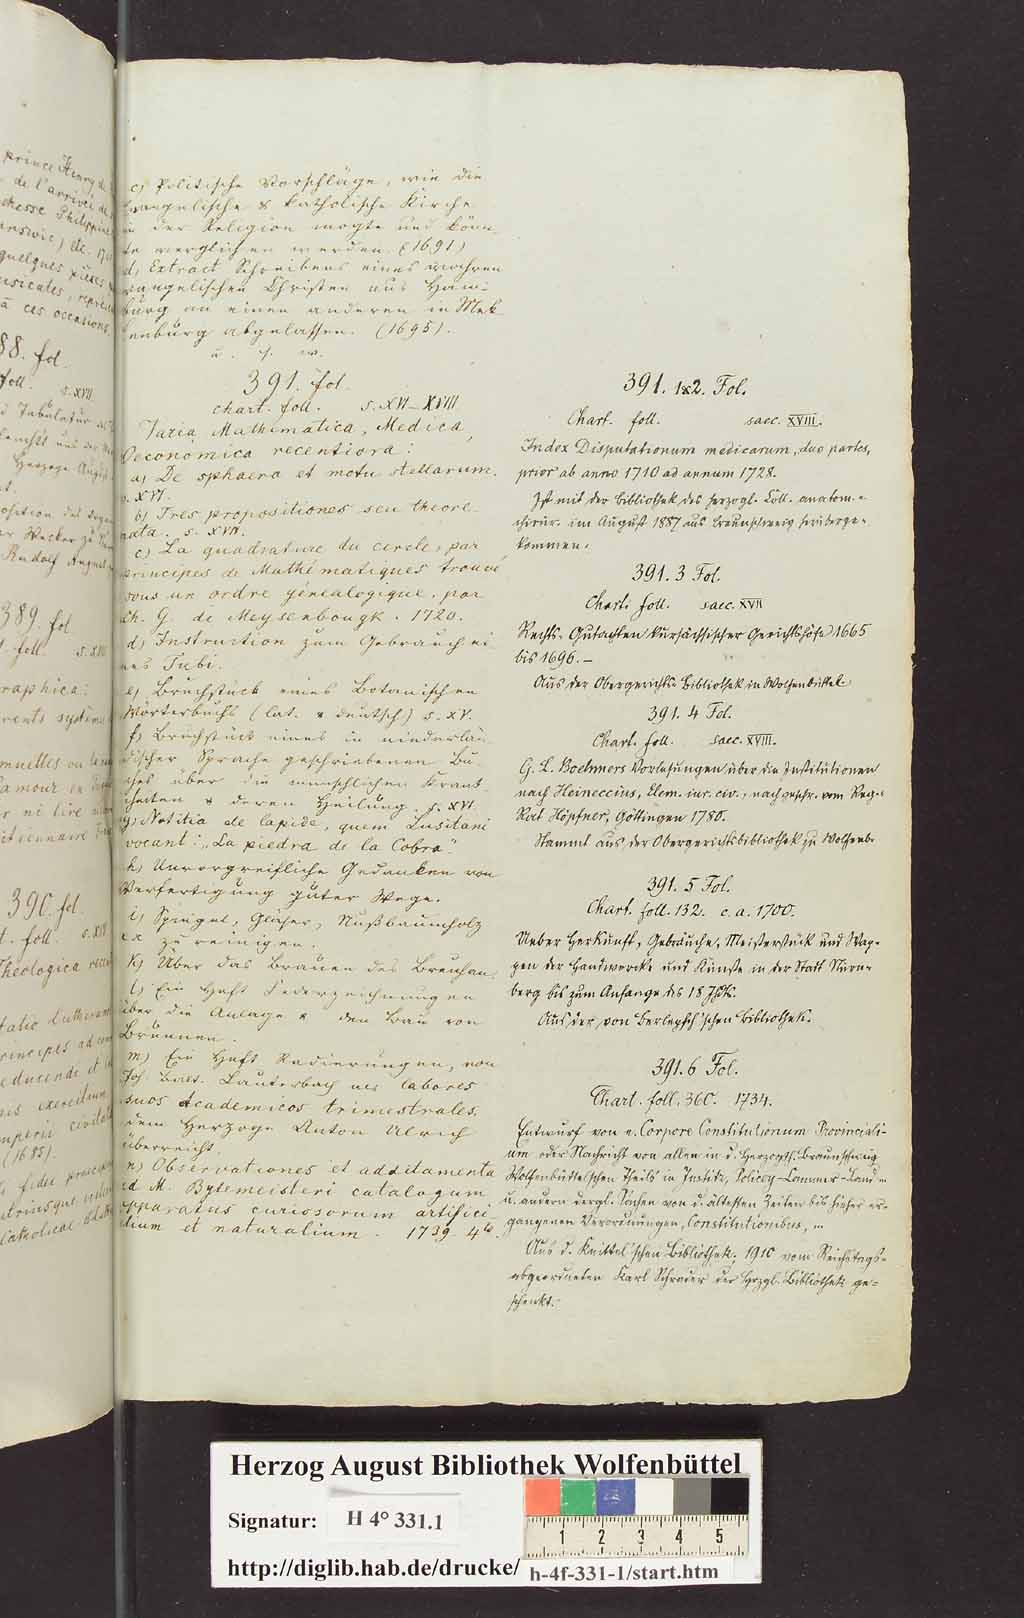 c) Politische Vorschläge, wie die
evangelische & katholische Kirche
in der Religion mögte und könn-
te verglichen werden. (1691)
d) Extract Schreibens eines wahren
evangelischen Christen aus Ham-
burg an einen anderen in Mek-
lenburg abgelassen. (1695).
u. s. w.
391. fol.
chart. foll. s. XVI–XVIII
Varia Mathematica, Medica,
Oeconomica recentiora:
a) De sphaera et motu stellarum.
s. XVI.
b) Tres propositiones seu theore-
mata. s. XVII.
c) La quadrature du cercle, par
principes de Mathématiques trouvé
sous un ordre genealogique. par
Ch. G. de Meysenbougk. 1720.
d) Instruction zum Gebrauch ei-
nes Tubi.
e) Bruchstück eines Botanischen
Wörterbuchs (lat. & deutsch) s. XV.
f) Bruchstück eines in niederlän-
discher Sprache geschriebenen Bu-
ches über die menschlichen Krank-
heiten & deren Heilung. s. XVI.
g) Notitia de lapide, quem Lusitani
vocant: „La piedra de la Cobra".
h) Unvorgreifliche Gedanken von
Verfertigung guter Wege.
i) Spiegel, Gläser, Nußbaumholz
zu reinigen.
k) Über das Brauen des Breuhan.
l) Ein Heft Federzeichnungen
über die Anlage & den Bau von
Brunnen.
m) Ein Heft Radierungen, von
Joh. Balt. Lauterbach als labores
suos academicos trimestrales.
dem Herzoge Anton Ulrich
überreicht.
n) Observationes et additamenta
ad M. Bytemeisteri catalogum
apparatus curiosorum artifici-
alium et naturalium. 1739. 4to.
391. 1&2. Fol.
Chart. foll. saec. XVIII.
Index Disputationum medicarum, duo partes,
prior ab anno 1710 ad annum 1728.
Ist mit der Bibliothek des herzogl. Coll. anatom.-
chirur. im August 1887 aus Braunschweig herüberge-
kommen.
391. 3 Fol.
Chart. foll. saec. XVII
Rechts-Gutachten kursächsischer Gerichtshöfe 1665
bis 1696.–
Aus der Obergerichts-Bibliothek in Wolfenbüttel.
391. 4 Fol.
Chart. foll. saec. XVIII.
G. L. Boehmers Vorlesungen über die Institutionen
nach Heineccius, Elem. iur. civ., nachgeschr. vom Reg.-
Rat Höpfner, Göttingen 1780.
Stammt aus der Obergerichtsbibliothek zu Wolfenb.
391. 5 Fol.
Chart. foll. 132. c. a. 1700.
Ueber Herkunft, Gebräuche, Meisterstück und Wap-
pen der Handwercke und Künste in der Statt Nürn-
berg bis zum Anfange des 18 Jhdts.
Aus der von Berlepsch'schen Bibliothek.
391. 6 Fol.
Chart. foll. 360. 1734.
Entwurf von e. Corpore Constitutionum Provinciali-
um oder Nachricht von allen in d. Herzogth. Braunschweig
Wolfenbüttelschen Theils in Justitz, Policey-Cammer-Land-
u. andern dergl. Sachen von d. ältesten Zeiten bis hieher er-
gangenen Verordnungen, Constitutionibus, ...
Aus d. Knittel'schen Bibliothek; 1910 vom Reichstags-
abgeordneten Karl Schrader der Herzgl. Bibliothek ge-
schenkt.
prince Henry de
de l'arrivée de
388. fol.
foll. s. XVII
389. fol
foll. s. XVII
390. fol.
foll. s. XVII
Theologica recen
(1685).
Herzog August Bibliothek Wolfenbüttel
Signatur: H 4° 331.1
1 2 3 4 5
http://diglib.hab.de/drucke/ h-4f-331-1/start.htm